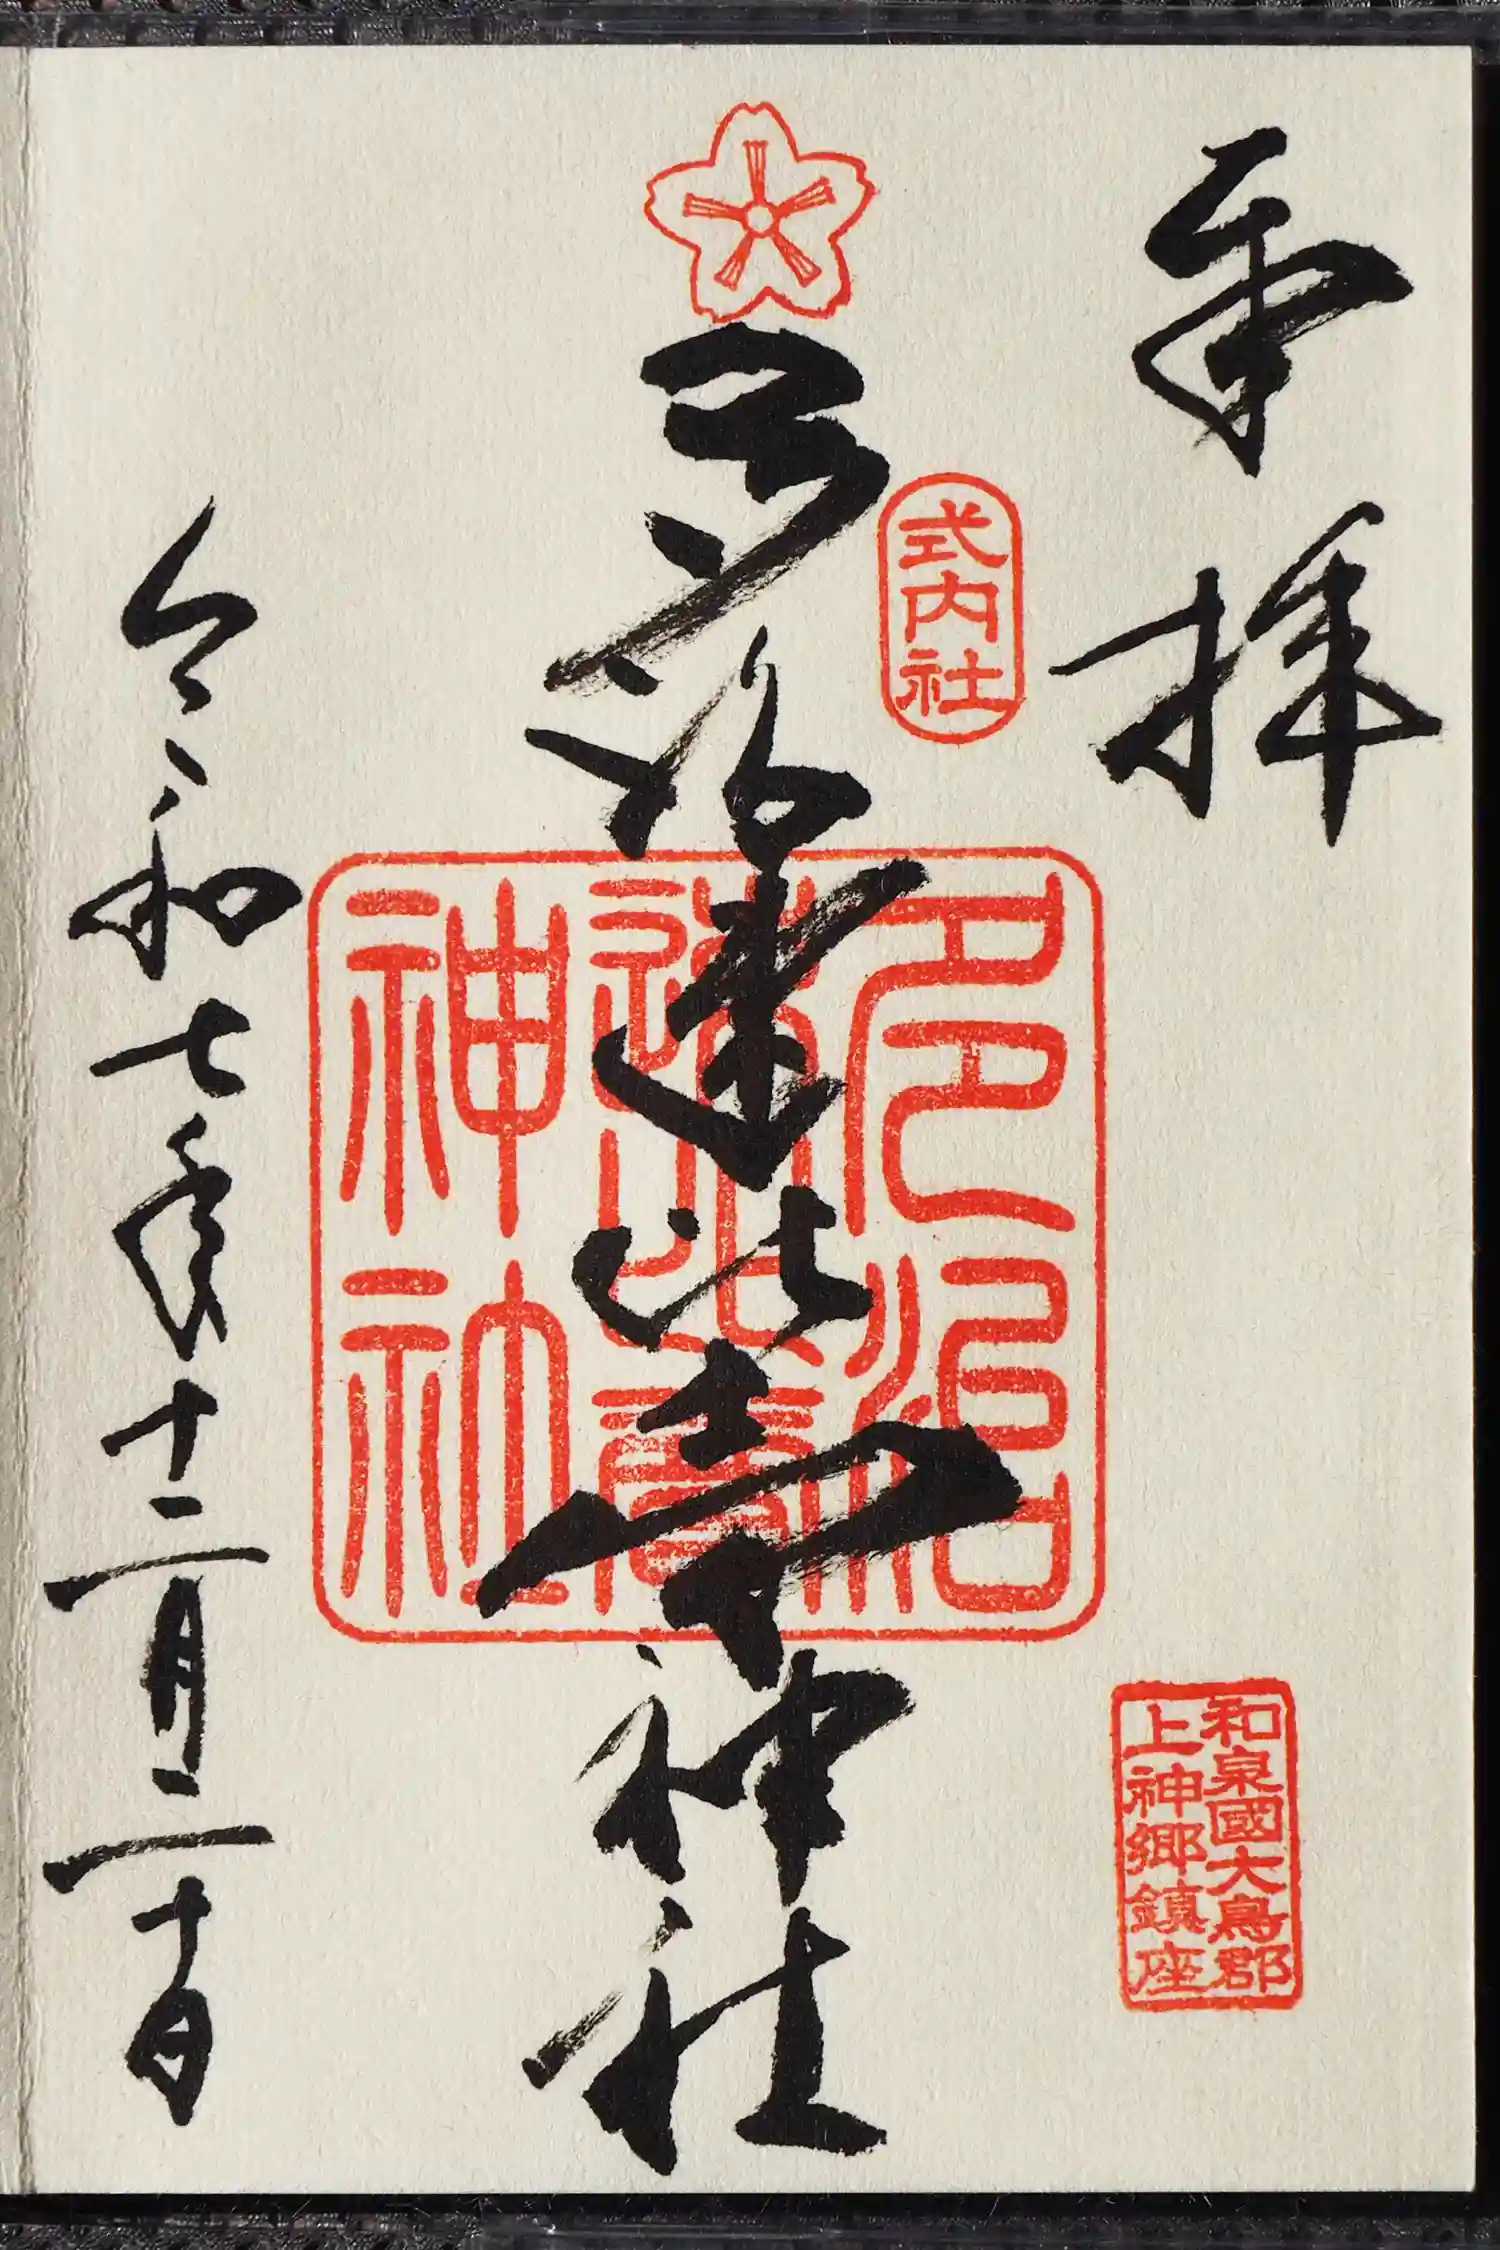 奉拝
式内社
和泉國大鳥郡
上神郷鎮座
多治速比売神社
多治
速比賣
神社
令和七年十二月二十日